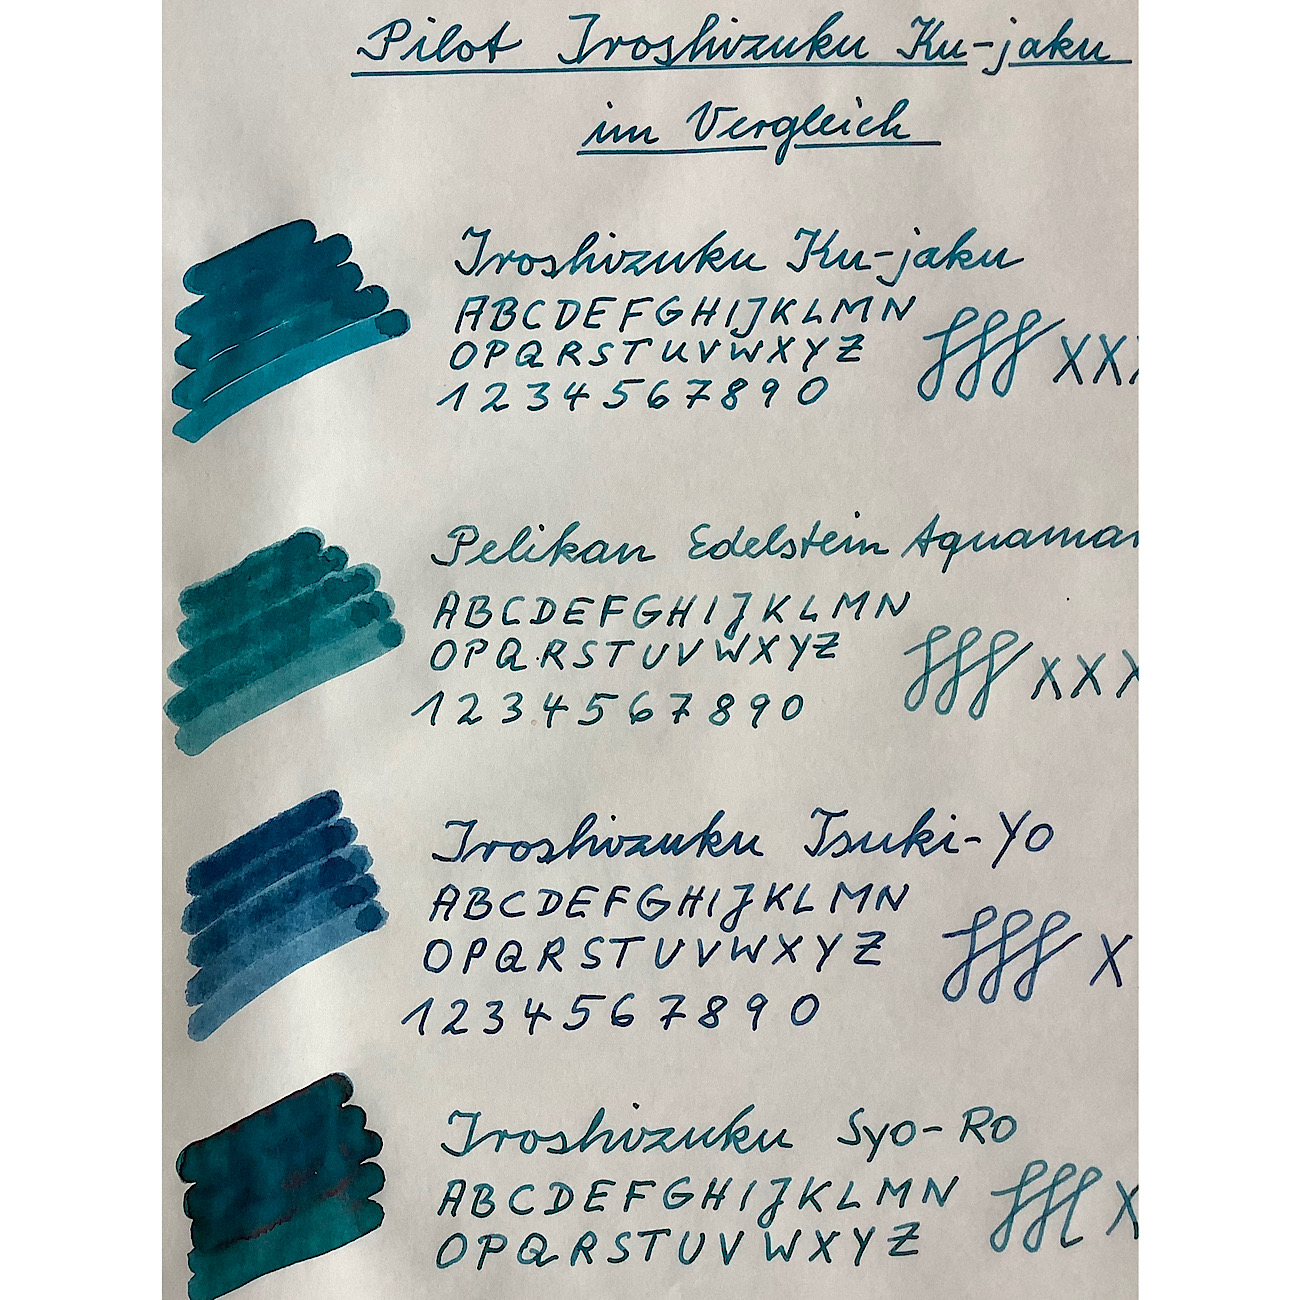 Pilot Iroshizuku Ku-jaku
im Vergleich
Iroshizuku Ku-jaku
ABCDEFGHIJKLMN
OPQRSTUVWXYZ
1234567890
fff XXX
Pelikan Edelstein Aquamar
ABCDEFGHIJKLMN
OPQRSTUVWXYZ
1234567890
fff XXX
Iroshizuku Tsuki-Yo
ABCDEFGHIJKLMN
OPQRSTUVWXYZ
1234567890
fff X
Iroshizuku Syo-Ro
ABCDEFGHIJKLMN
OPQRSTUVWXYZ
fff X